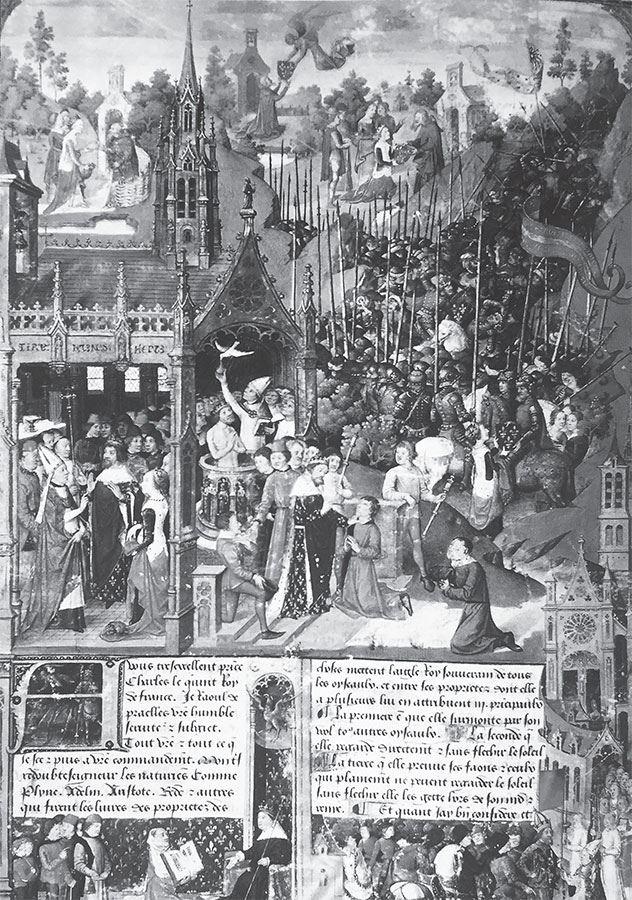 vous tresexcellent price
Charles le quint Roy
de france. Je Raoul de
praelles vre humble
seruite z subiect.
Tout vre z tout ce q
ie scez z puis a vre commandemt.
redoubte seigneur les natures Comme
Plyne. Adelin. Aristote. Bede z autres
qui firent les liures des proprietez des
choses mettent laigle Roy souuerain de tous
les oyseaulx. et entre ses proprietez dont elle
a plusieurs lui en attribuent iii. principaulx
La premiere e que elle surmonte par son
vol to autres oyseaulx. La seconde q
elle regarde directemt z sans flechir le soleil
La tierce q elle preuue ses faons z ceulx
qui plainemt ne peuent regarder le soleil
sans flechir elle les gette hors de son nid z
renie. Et quant jay bn considere et